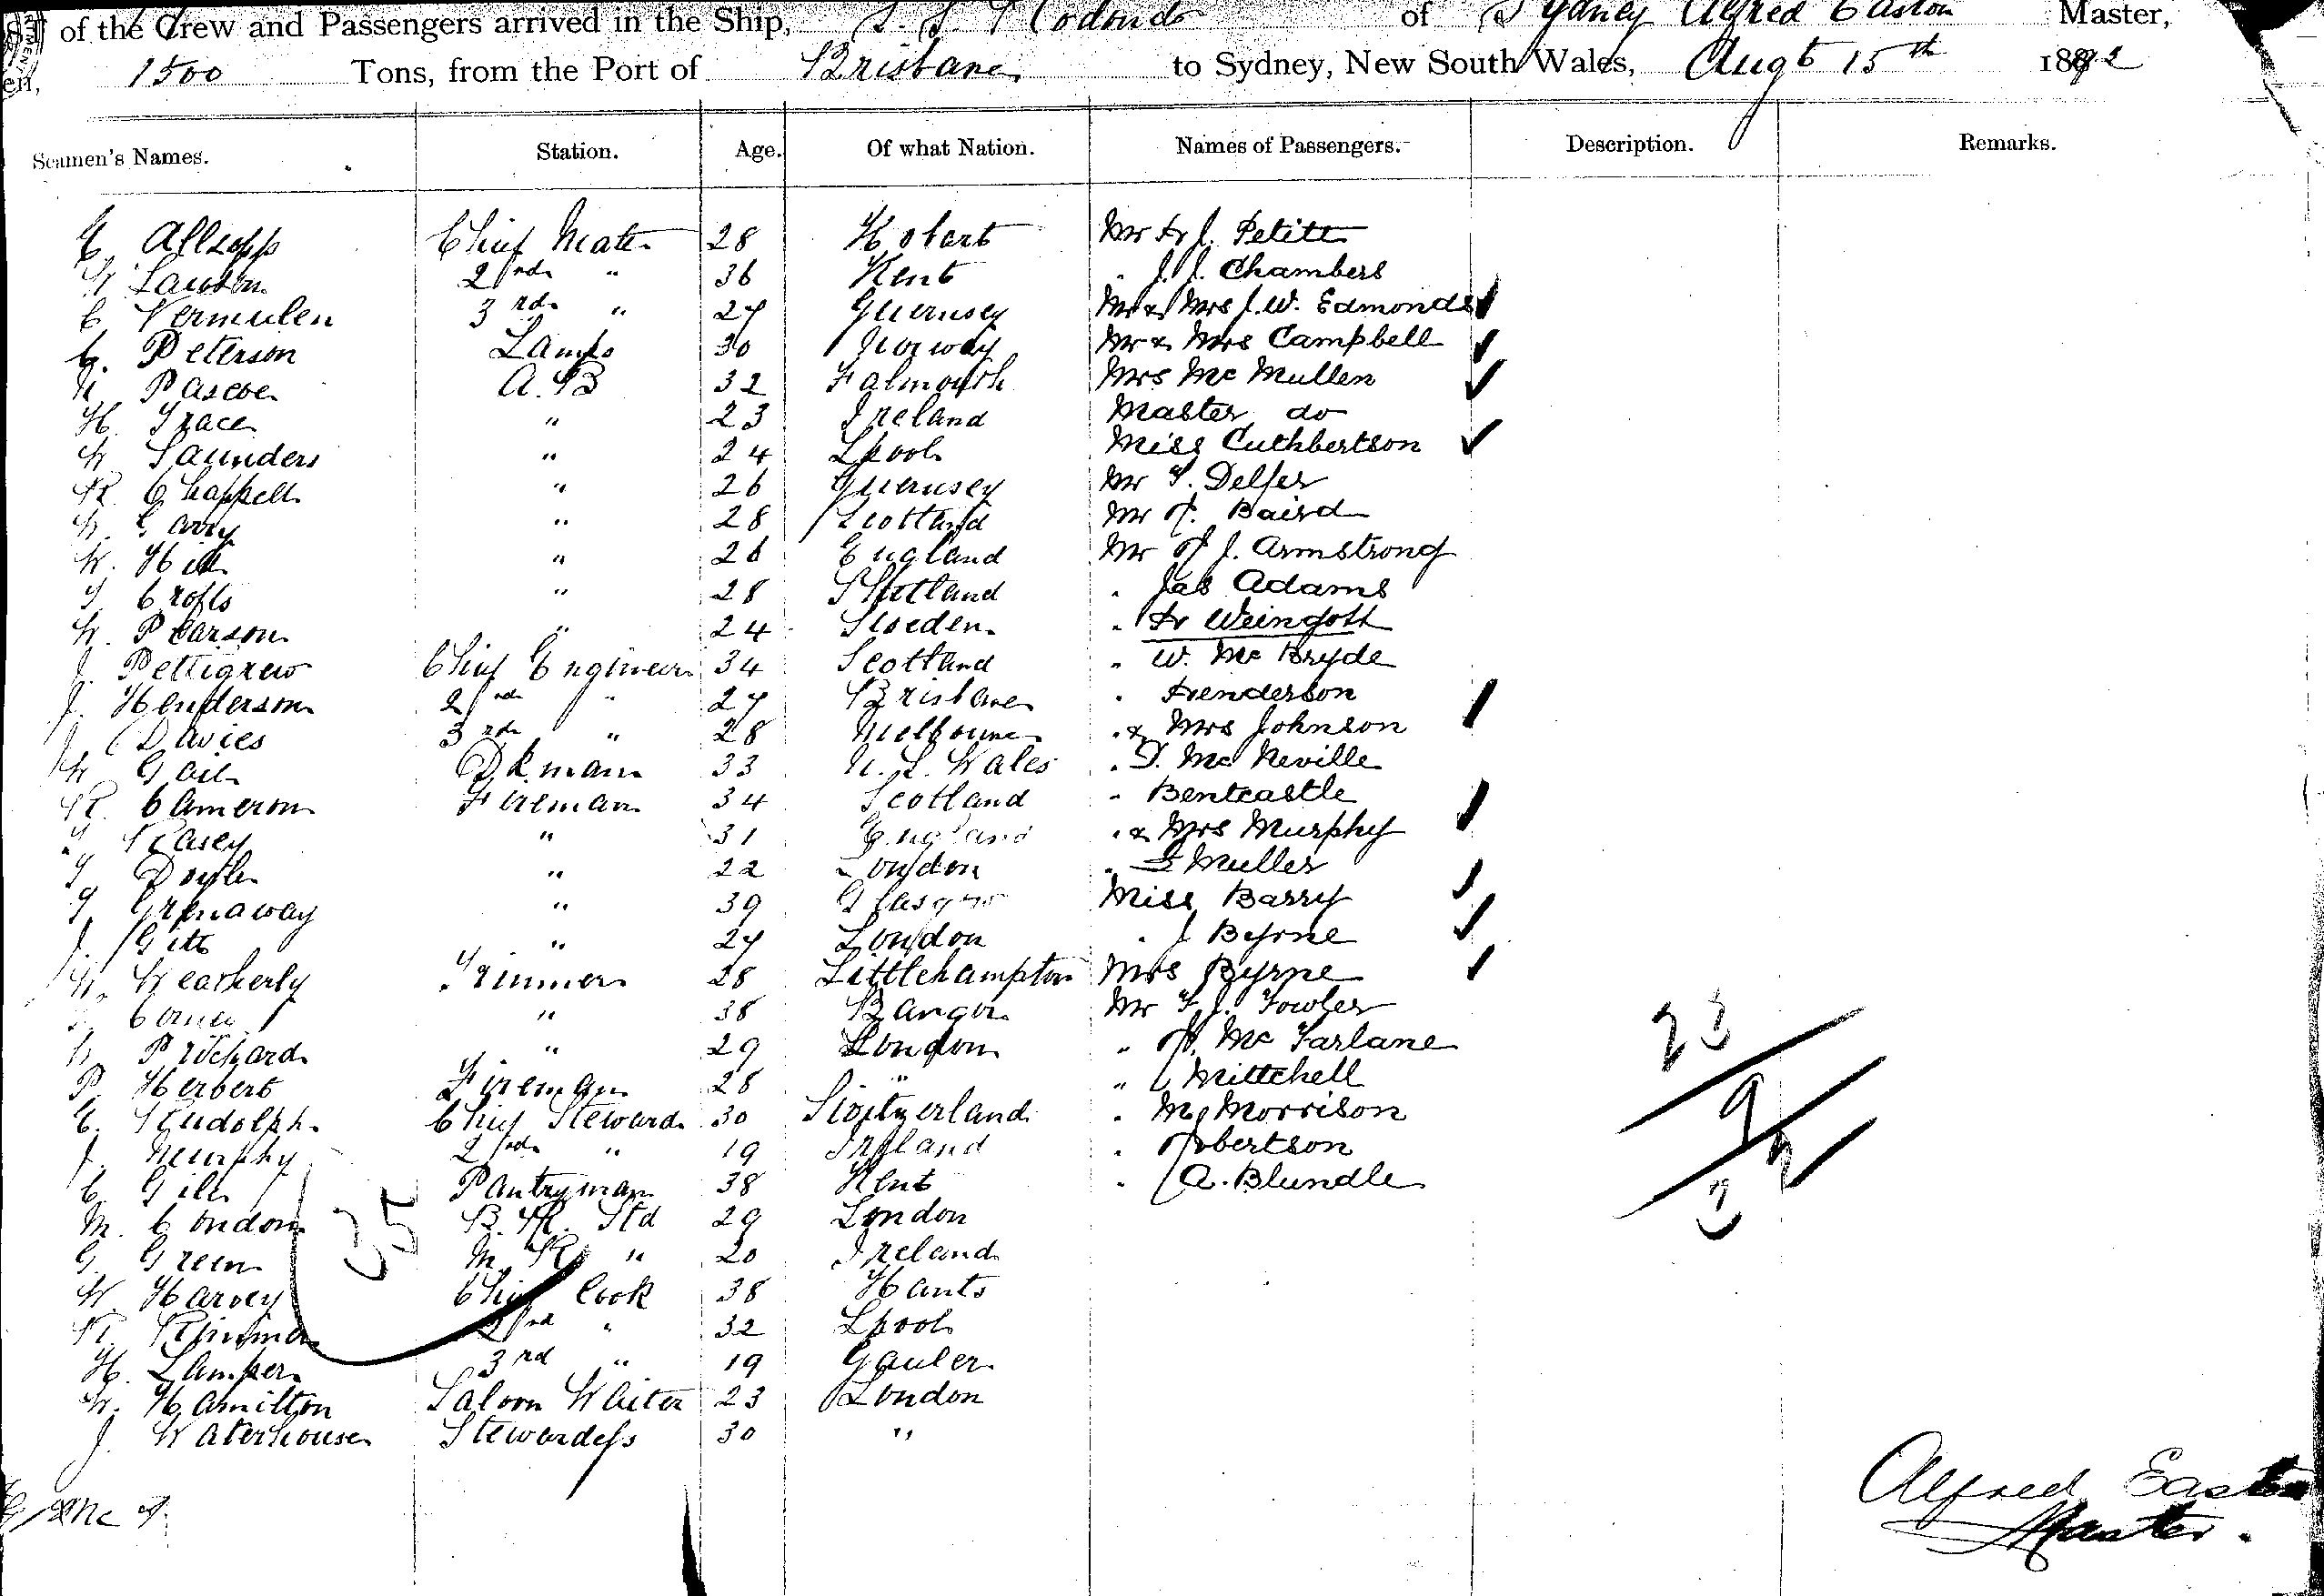 of the Crew and Passengers arrived in the Ship, S. S. Rodondo of Sydney Alfred Easton Master,
1500 Tons, from the Port of Brisbane to Sydney, New South Wales, Augt 15th 1892
Seamen's Names. Station. Age. Of what Nation. Names of Passengers. Description. Remarks.
E. Allsopp Chief Mate 28 Hobart Mr Hy J. Petitt
Lawson 2nd " 36 Kent " J. J. Chambers
C. Vermulen 3rd " 27 Guernsey Mr & Mrs J. W. Edmonds
C. Peterson Lamps 30 Norway Mr & Mrs Campbell
N. Pascoe A.B 32 Falmouth Mrs Mc Mullen
H. Grace " 23 Ireland Master do
W Saunders " 24 Lpool Miss Cuthbertson
R. Chappell " 26 Guernsey Mr Delfer
W. " 28 Scotland Mr Baird
W. Hill " 26 England Mr J. Armstrong
T Crofts " 28 Shetland " Jas Adams
W. Pearson " 24 Sweden " Weingott
J. Pettigrew Chief Engineer 34 Scotland " W. Mc Bryde
J. Henderson 2nd " 27 Brisbane " Henderson
J Davies 3rd " 28 Melbourne " & Mrs Johnson
W Gail Dkman 33 N. S. Wales " T. Mc Neville
R. Cameron Fireman 34 Scotland " Bentcastle
T Casey " 31 England " & Mrs Murphy
T Doyle " 22 London " Muller
T. Grenaway " 39 Glasgow Miss Barry
J. Gitt " 27 London " J Byrne
W. Weatherly Trimmer 28 Littlehampton Mrs Byrne
" 38 Bangor Mr F. J. Fowler
W. Prichard " 29 London " Mc Farlane
P. Herbert Fireman 28 " " Mittchell
E. Rudolph Chief Steward 30 Switzerland " Morrison
J. Murphy 2nd " 19 Ireland " Robertson
C. Giles Pantryman 38 Kent " A. Blundle
M. Condon B. R. Std 29 London
G. Green M. R. " 20 Ireland
W. Harvey Chief Cook 38 Hants
R. 2nd " 32 Lpool
H. Lamper 3rd " 19 Gauler
W. Hamilton Saloon Waiter 23 London
J. Waterhouse Stewardess 30 "
Alfred Easton
Master.